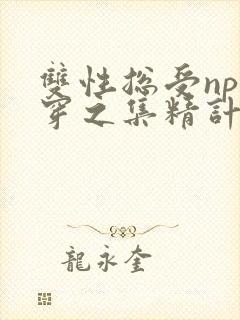 雙性總受np
穿之集精計
龍永奎